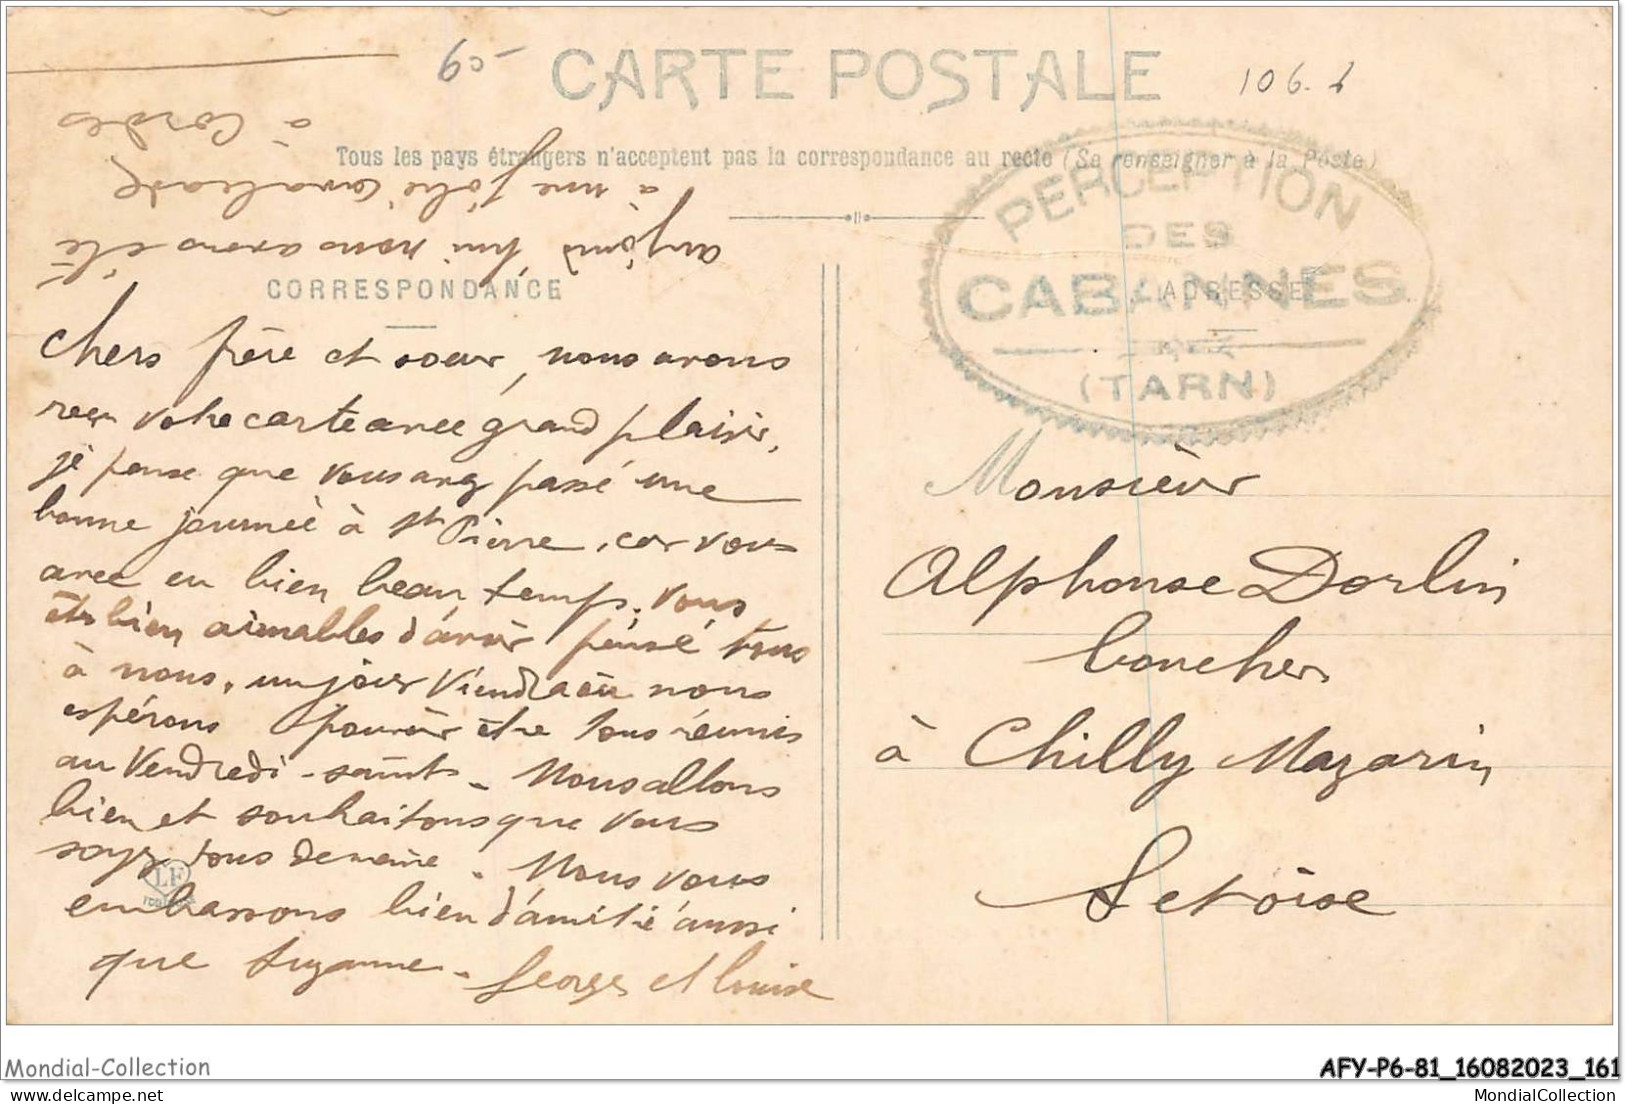 CARTE POSTALE
106.
Tous les pays étrangers n'acceptent pas la correspondance au recto (Se renseigner à la Poste)
PERCEPTION
DES
CABANNES
(TARN)
CORRESPONDANCE
ADRESSE
Chers frère et soeur, nous avons
reçu votre carte avec grand plaisir,
je pense que vous avez passé une
bonne journée à St Pierre, car vous
avec eu bien beau temps. Vous
êtes bien aimables d'avoir pensé tous
à nous, un jour viendra où nous
espérons pouvoir être tous réunis
au Vendredi-saint - Nous allons
bien et souhaitons que vous
soyez tous de même. Nous vous
embassons bien d'amitié aussi
que Suzanne - Georges et Louise
aujourd'hui nous avons été
à une jolie cavalcade
à Cordes
Monsieur
Alphonse Dorlin
boucher
à Chilly Mazarin
Set oise
LF
Mondial-Collection
AFY-P6-81_16082023_161
delcampe.net
MondialCollection